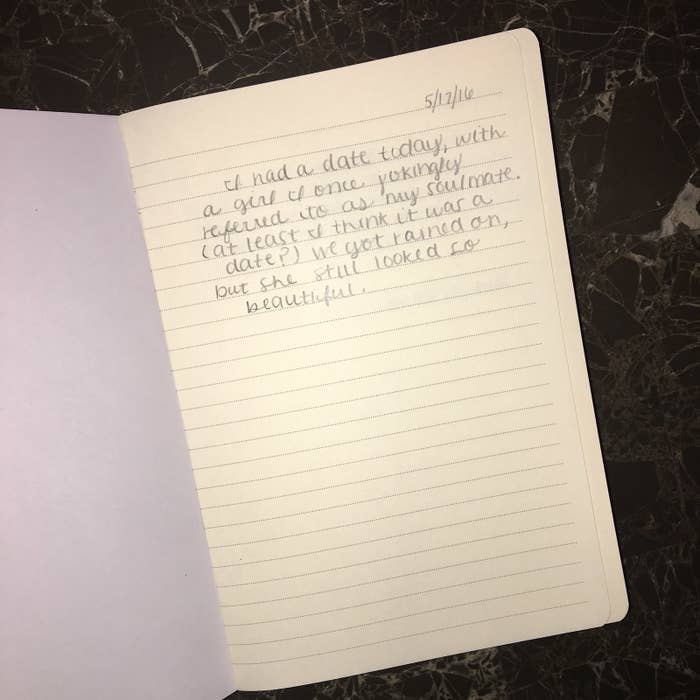 5/17/16
I had a date today, with
a girl I once jokingly
referred to as my soulmate.
(at least I think it was a
date?) we got rained on,
but she still looked so
beautiful.